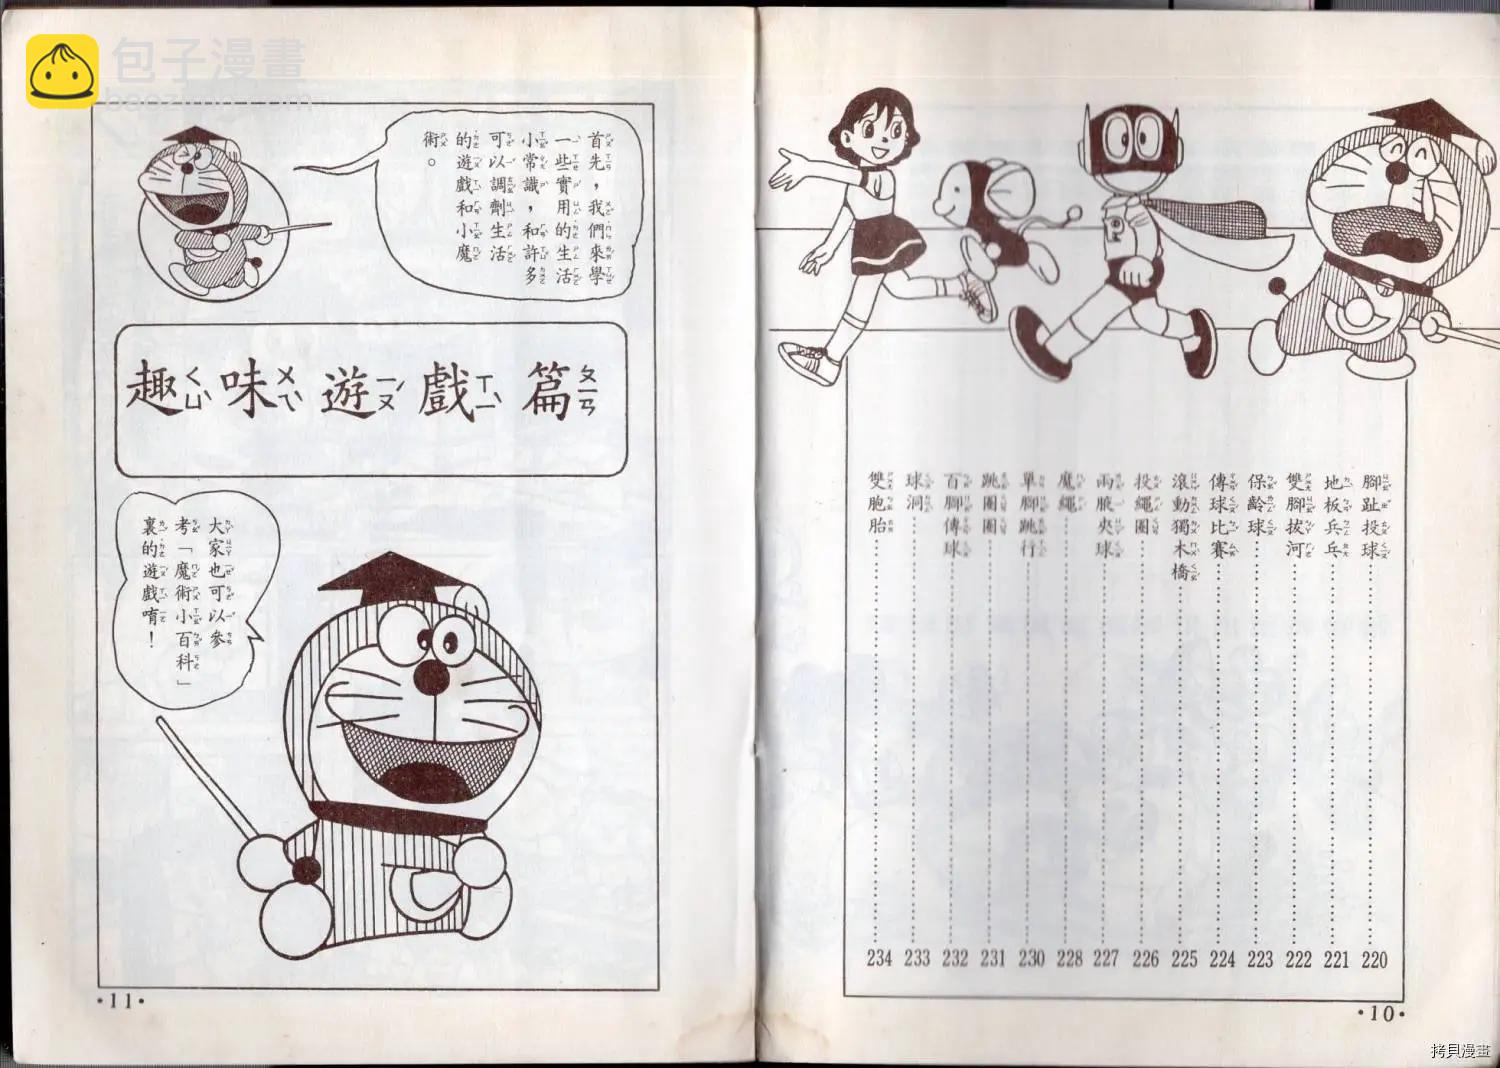 包子漫畫
baozimh.com
腳趾投球 220
地板乒乓 221
雙腳拔河 222
保齡球 223
傳球比賽 224
滾動獨木橋 225
投繩圈 226
兩腋夾球 227
魔繩 228
單腳跳行 230
跳圈圈 231
百腳傳球 232
球洞 233
雙胞胎 234
•10•
首先，我們來學
一些實用的生活
小常識，和許多
可以調劑生活
的遊戲和小魔
術。
趣味遊戲篇
ㄑㄩˋ ㄨㄟˋ ㄧㄡˊ ㄒㄧˋ ㄆㄧㄢ
大家也可以參
考「魔術小百科」
裏的遊戲唷！
•11•
拷貝漫畫